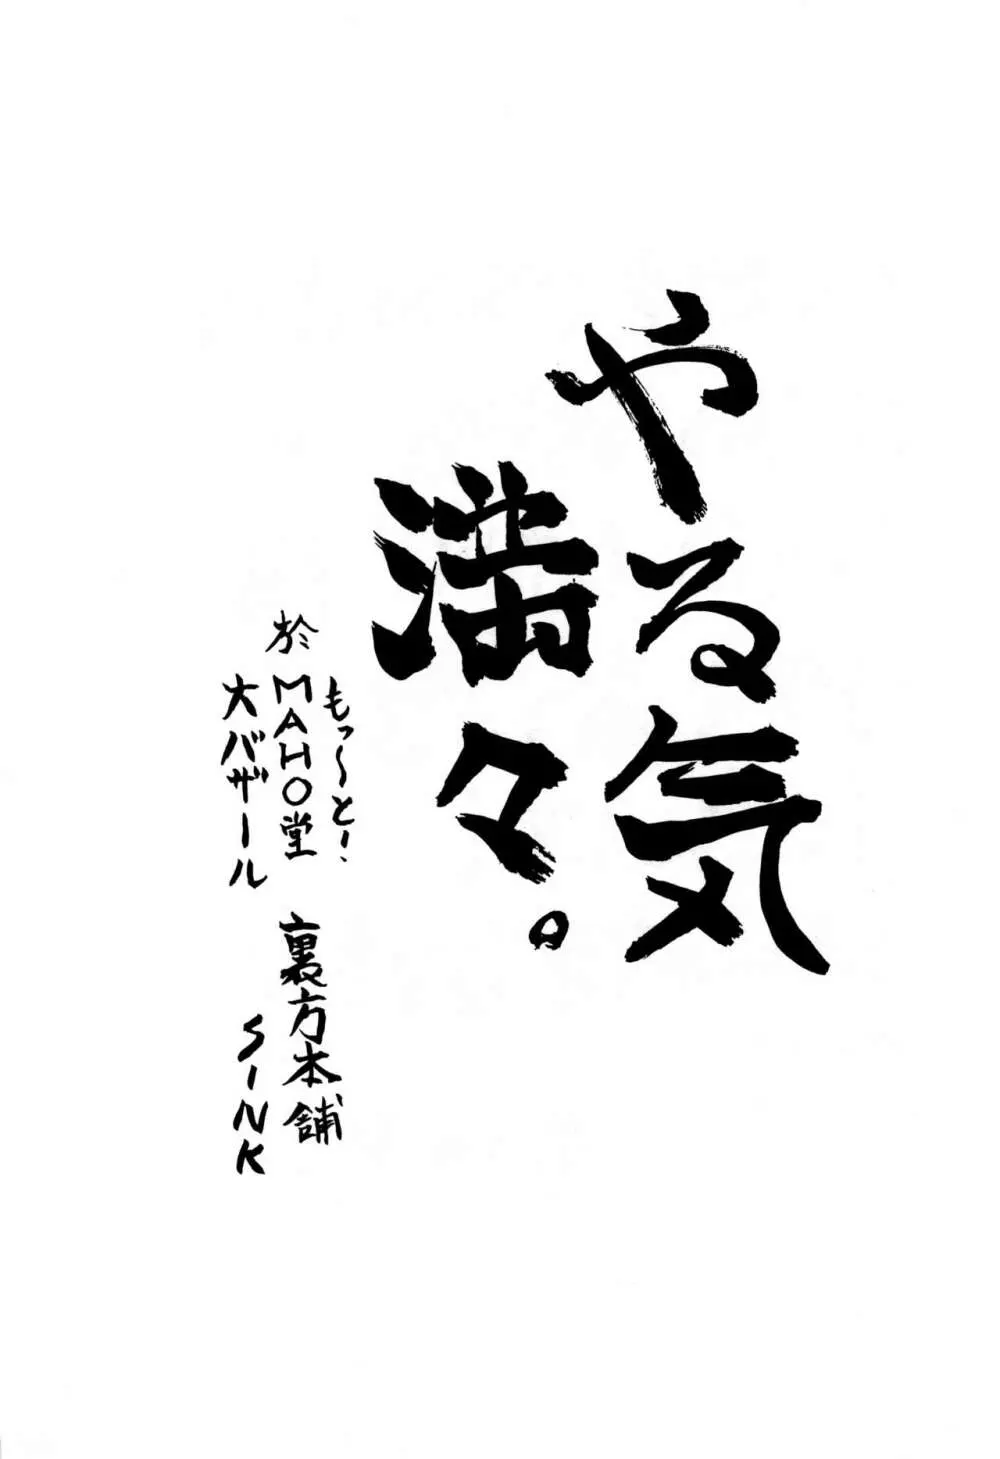 やる気
満々。
もっ〜と！
於MAHO堂
大バザール
裏方本舗
SINK